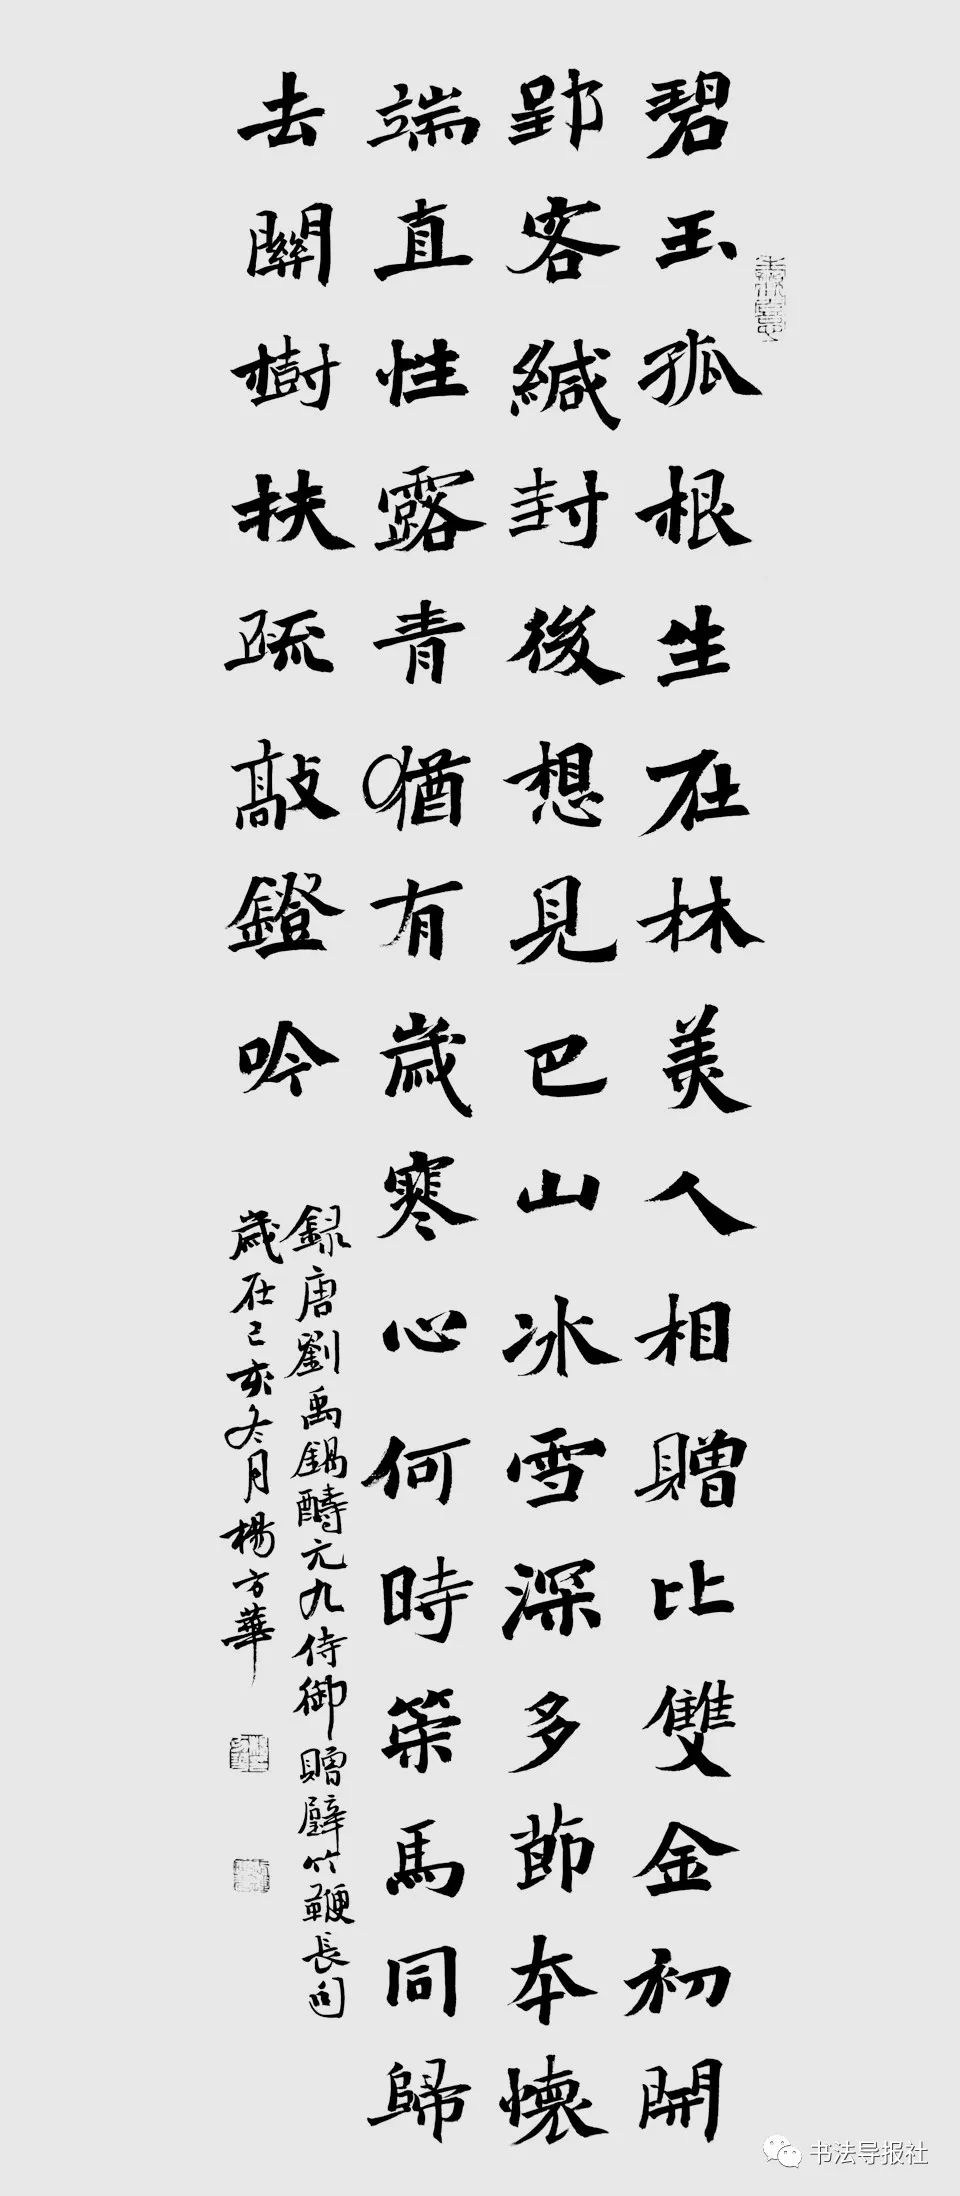 碧玉孤根生在林美人相贈比雙金初開
郢客緘封後想見巴山冰雪深多節本懷
端直性露青猶有歲寒心何時策馬同歸
去關樹扶疏敲鐙吟
録唐劉禹錫醻元九侍御贈璧竹鞭長句
歲在己亥冬月楊方華
书法导报社